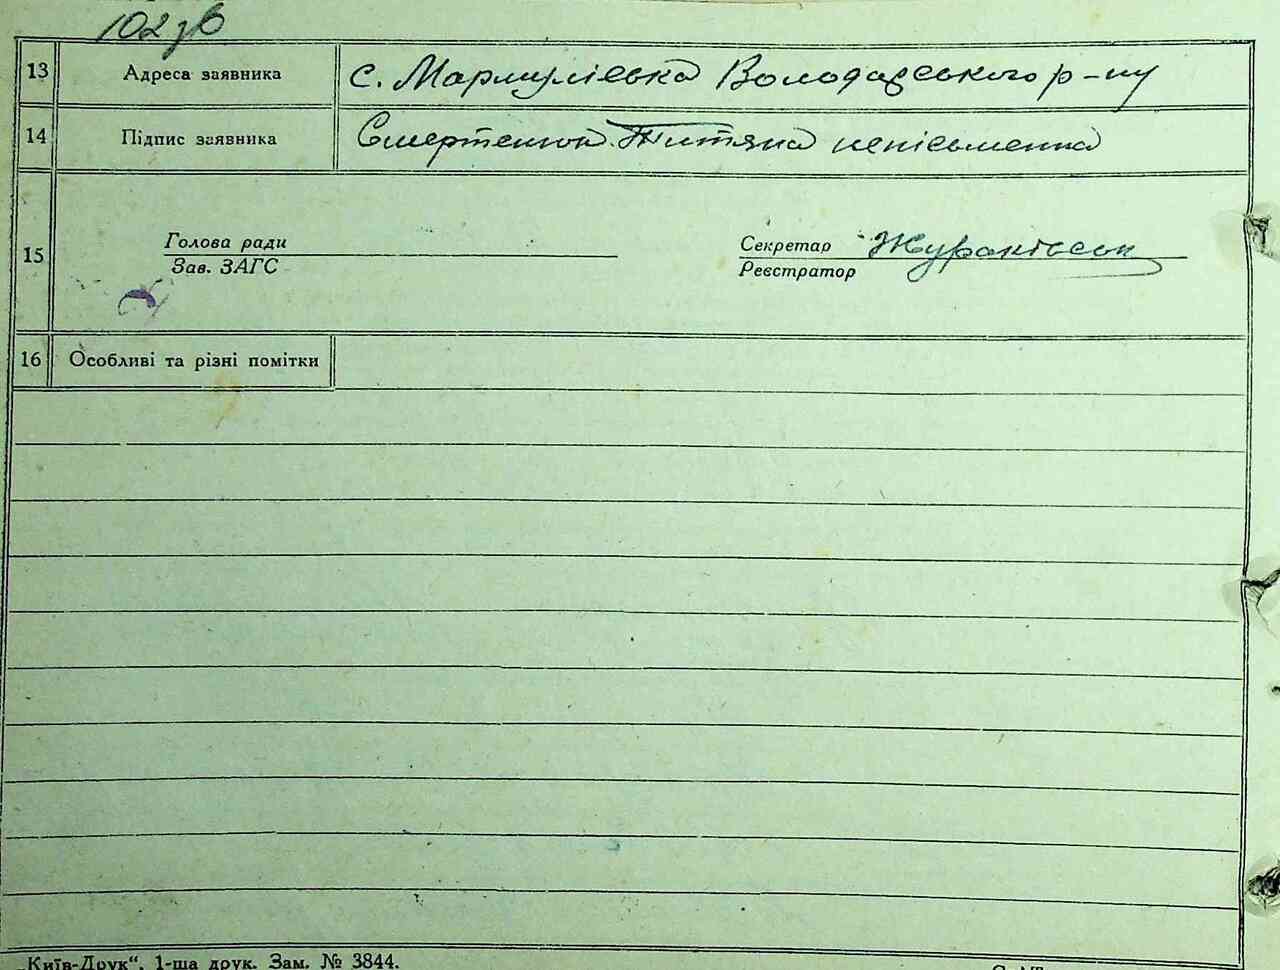 102 зв
13 Адреса заявника с. Мармуліївка Володарського р-ну
14 Підпис заявника Смертенюк Титяна неписьменна
15 Голова ради Секретар
Зав. ЗАГС Реєстратор
16 Особливі та різні помітки
„Київ-Друк“. 1-ша друк. Зам. № 3844.